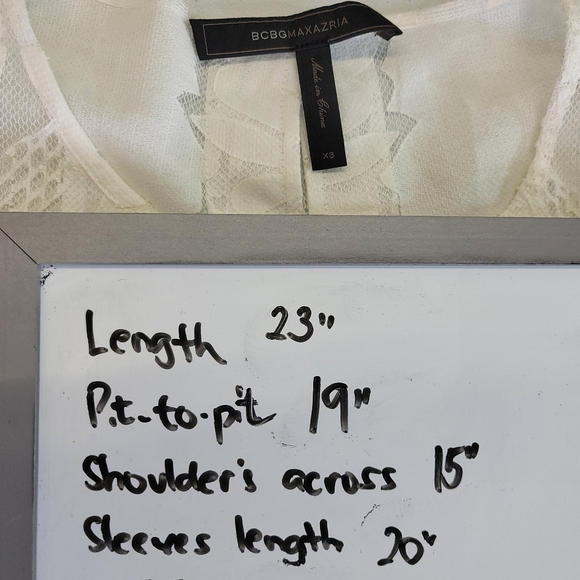 BCBGMAXAZRIA
Made in China
XS
Length 23"
Pit-to-pit 19"
Shoulder's across 15"
Sleeves length 20"